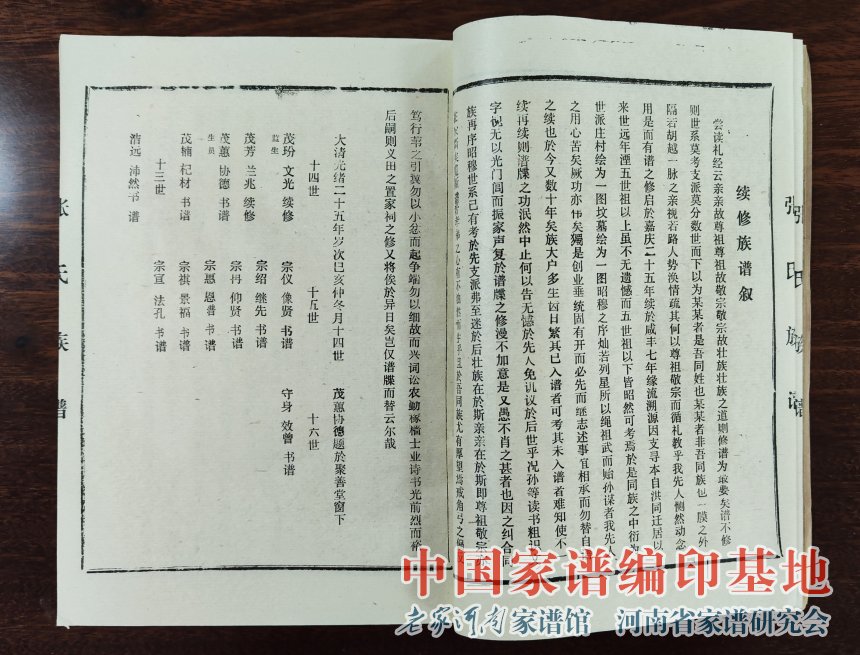 张氏族谱
续修族谱叙
尝读礼经云亲亲故尊祖尊祖故敬宗敬宗故壮族壮族之道则修谱为最要矣谱不修
则世系莫考支派莫分数世而下以为某某者是吾同姓也某某者非吾同族也一膜之外
隔若胡越一脉之亲视若路人势涣情疏其何以尊祖敬宗而循礼教乎我先人恻然动念
用是而有谱之修启於嘉庆二十五年续於咸丰七年缘流溯源因支寻本自洪同迁居以
来世远年湮五世祖以上虽不无遗憾而五世祖以下皆昭然可考焉於是同族之中衍为
世派庄村绘为一图坟墓绘为一图昭穆之序灿若列星所以绳祖武而贻孙谋者我先人
之用心苦矣厥功亦伟矣獨是创业垂统固有开而必先而继志述事宜相承而勿替自
之续也於今又数十年矣族大户多生齿日繁其已入谱者可考其未入谱者难知使不
续再续则谱牒之功泯然中止何以告无憾於先人免讥议於后世乎况孙等读书粗识
字视无以光门闾而振家声复於谱牒之修漫不加意是又愚不肖之甚者也因之纠合同
族再序昭穆世系已有考於先支派弗至迷於后壮族在於斯亲亲在於斯即尊祖敬宗亦
吾同族尤有厚望焉戒角弓之
笃行苇之引勿以小忿而起争端勿以细故而兴词讼农勤稼穑士业诗书光前烈而裕
后嗣则义田之置家祠之修又将俟於异日矣岂仅谱牒而替云尔哉
大清光绪二十五年岁次巳亥仲冬月十四世 茂蕙协德题於聚善堂窗下
十四世 十五世 十六世
茂玢 文光 续修 宗仪 像贤 书谱 守身 效曾 书谱
监生
茂芳 兰兆 续修 宗绍 继先 书谱
茂蕙 协德 书谱 宗冉 仰贤 书谱
生员
宗惠 恩普 书谱
茂楠 杞材 书谱 宗祺 景福 书谱
十三世 宗宣 法孔 书谱
浩远 沛然 书谱
张氏族谱
中国家谱编印基地
老家河南家谱馆 河南省家谱研究会